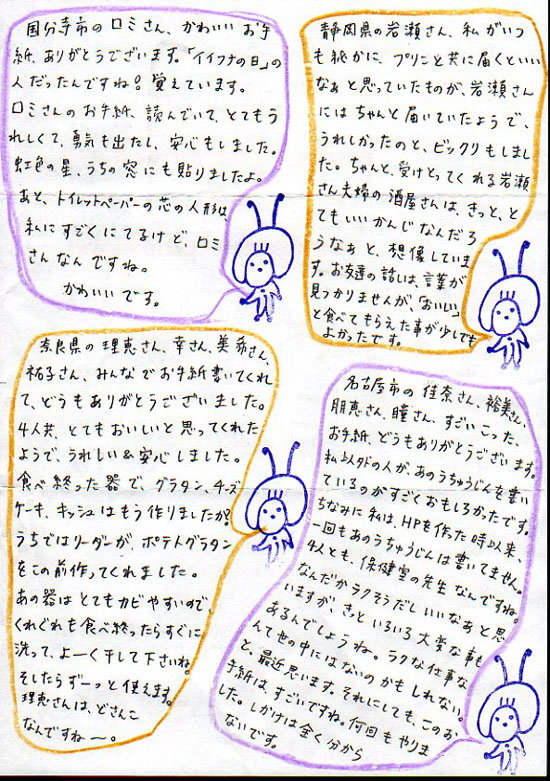 国分寺市のロミさん、かわいいお手
紙、ありがとうございます。「イイフナの日」の
人だったんですね。覚えています。
ロミさんのお手紙、読んでいて、とてもう
れしくて、勇気も出たし、安心もしました。
虹色の星、うちの窓にも貼りましたよ。
あと、トイレットペーパーの芯の人形は
私にすごくにてるけど、ロミ
さんなんですね。
かわいいです。
静岡県の岩瀬さん、私がいつ
も秘かに、プリンと共に届くといい
なぁと思っていたものが、岩瀬さん
にはちゃんと届いていたようで、
うれしかったのと、ビックリもしまし
た。ちゃんと、受けとってくれる岩瀬
さん夫婦の酒屋さんは、きっと、と
てもいいかんじなんだろ
うなぁと、想像していま
す。お友達の話しは、言葉が
見つかりませんが、「おいしい」
と食べてもらえた事が少しでも
よかったです。
奈良県の理恵さん、幸さん、美希さん、
祐子さん、みんなでお手紙書いてくれ
て、どうもありがとうございました。
4人共、とてもおいしいと思ってくれた
ようで、うれしい&安心しました。
食べ終った器で、グラタン、チーズ
ケーキ、キッシュはもう作りましたか?
うちではリーダーが、ポテトグラタン
をこの前作ってくれました。
あの器はとてもカビやすいので、
くれぐれも食べ終ったらすぐに
洗って、よーく干して下さいね。
そしたらずーっと使えます。
理恵さんは、どさんこ
なんですね〜。
名古屋市の佳奈さん、裕美さん、
朋恵さん、瞳さん、すごいこった、
お手紙、どうもありがとうございます。
私以外の人が、あのうちゅうじんを書い
ているのがすごくおもしろかったです。
ちなみに私は、HPを作った時以来
一回もあのうちゅうじんは書いてません。
4人とも、保健室の先生なんですね。
なんだかラクそうだしいいなぁと思
いますが、きっといろいろ大変な事も
あるんでしょうね。ラクな仕事な
んて世の中にはないのかもしれない。
と、最近思います。それにしても、このお
手紙は、すごいですね。何回もやりま
した。しかけは全く分から
ないです。